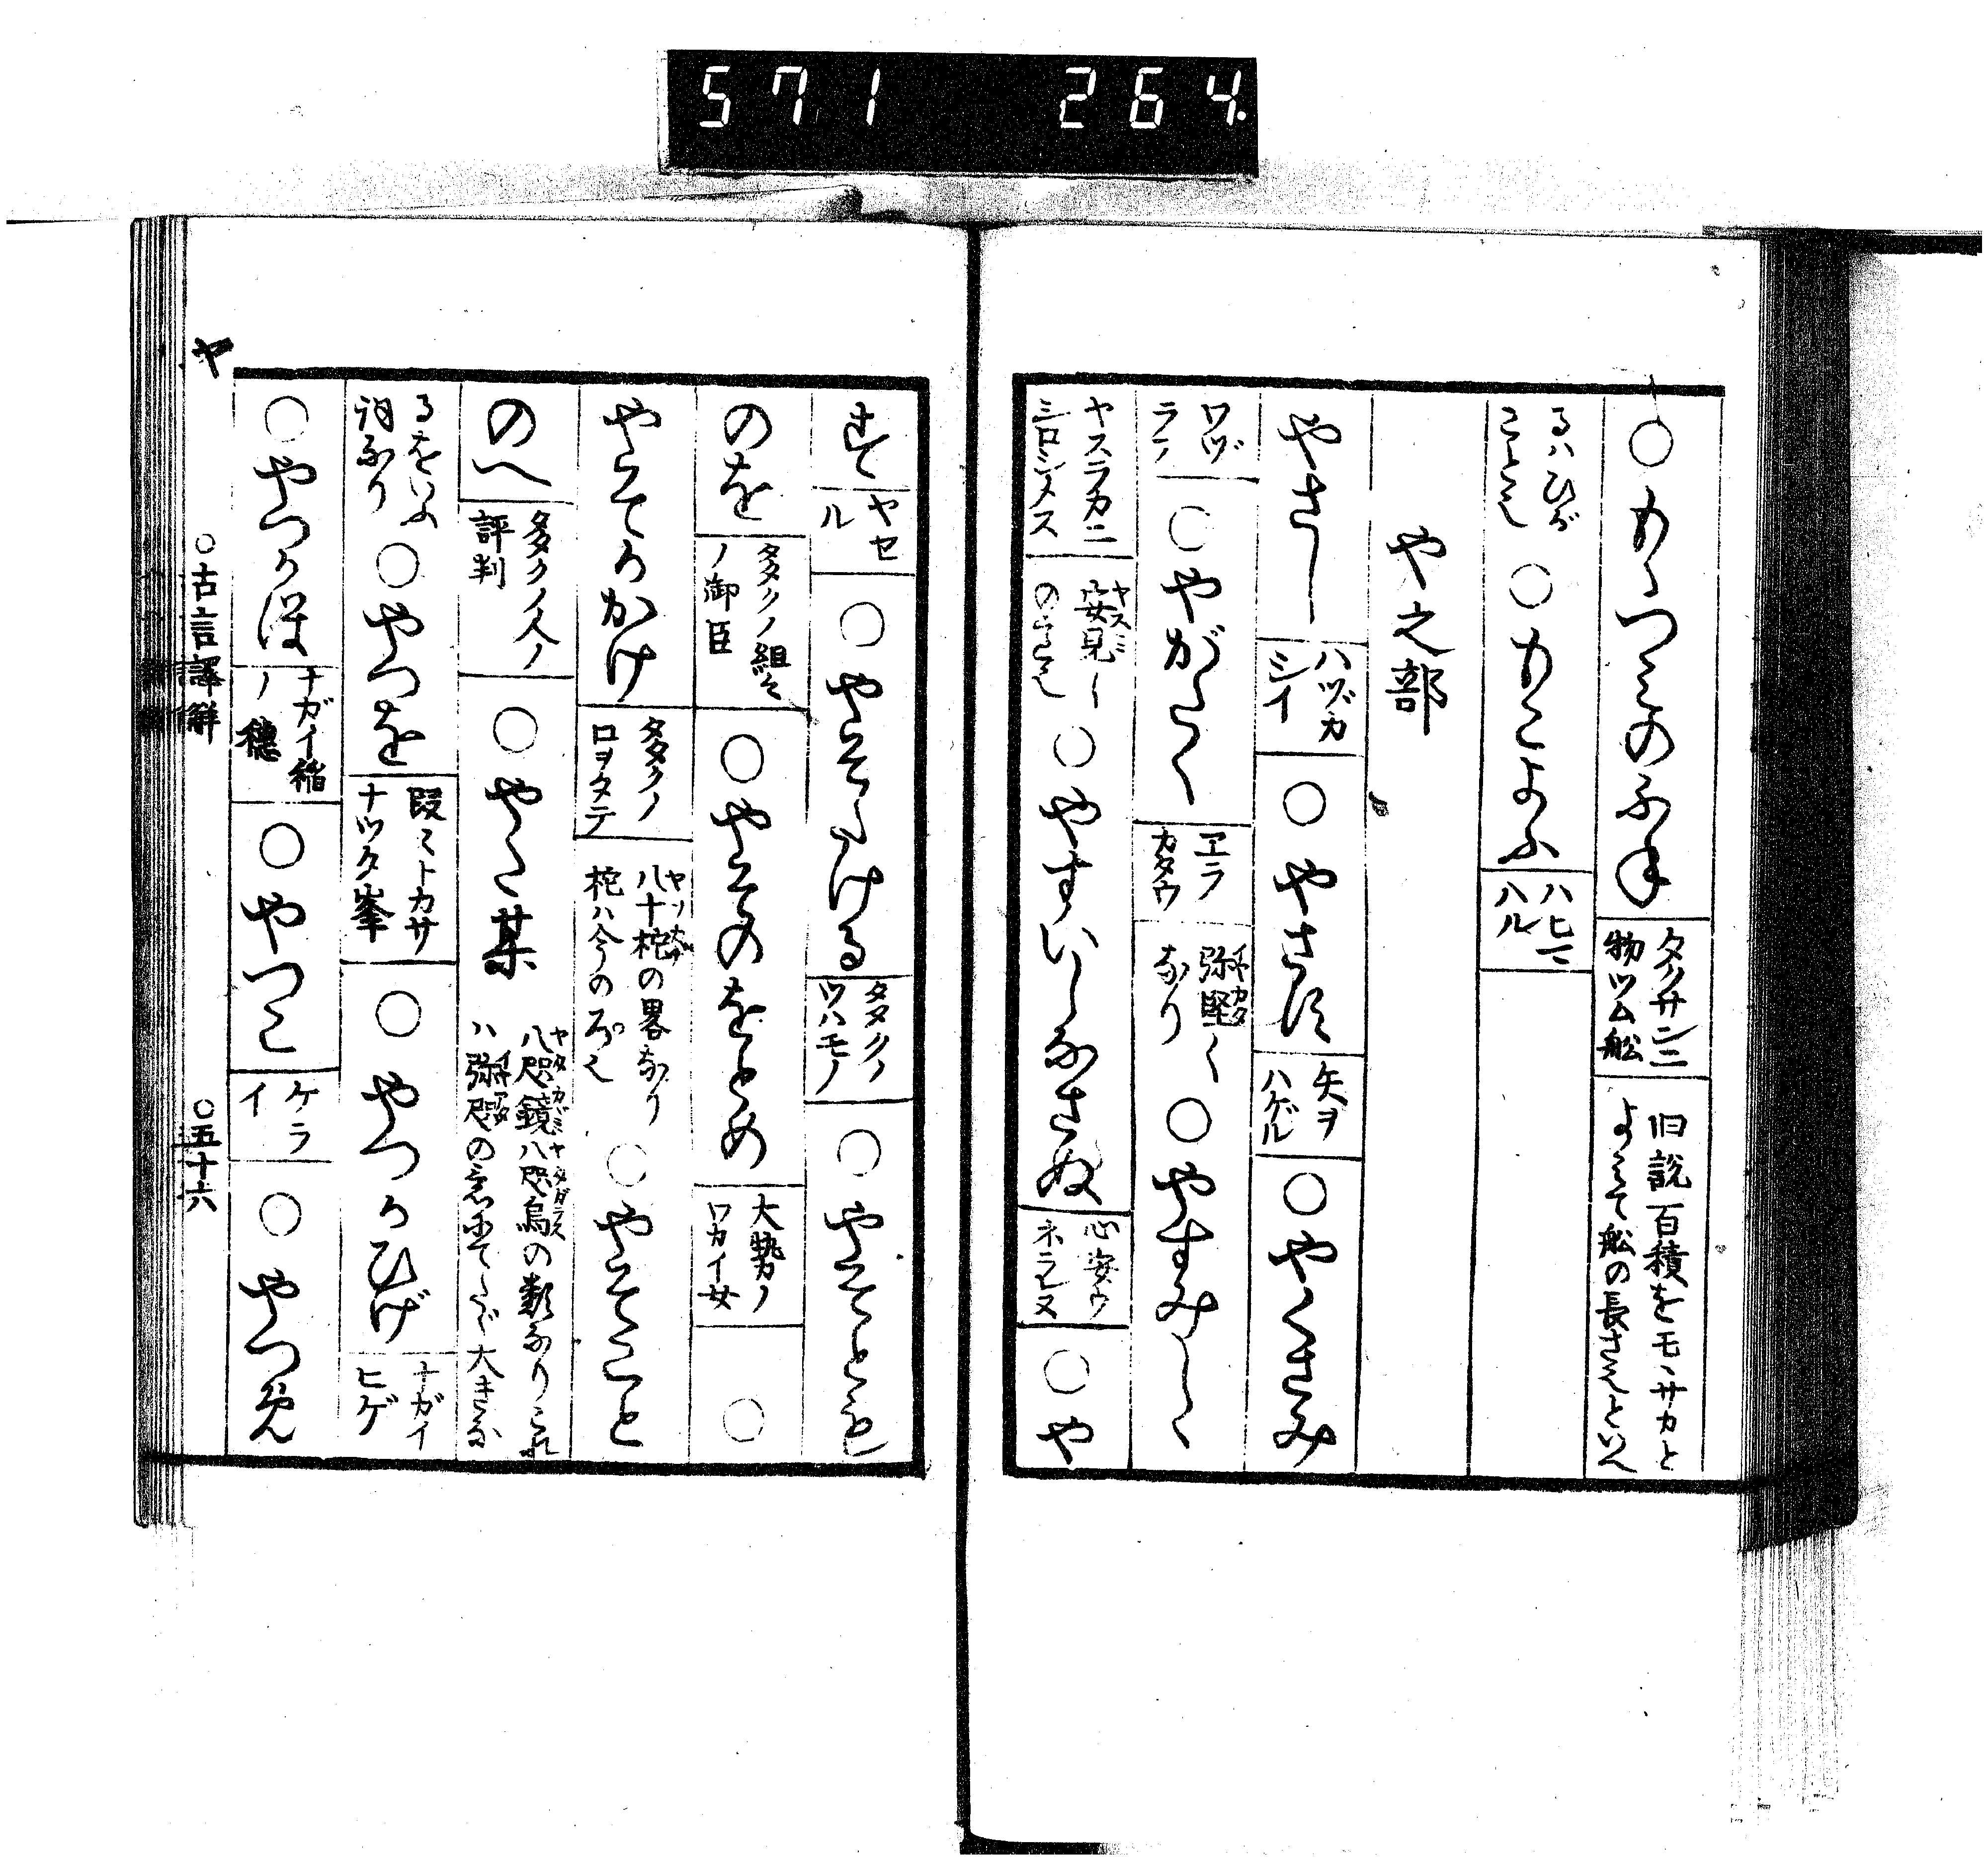 571 264
○もゝつみのふね タクサンニ物ツム舩 旧説百積をモヽサカとよみて舩の長さ也といへ
るハひがこと也 ○もこよふ ハヒマハル
や之部
やさし ハヅカシイ ○やさはく 矢ヲハゲル ○やくさみ
ワヅラフ ○やがたく ヱラカタウ 弥堅くなり ○やすみしゝ
ヤスラカニシロシメス 安見しの意也 ○やすいしなさぬ 心安ウネラレヌ ○や
すヤセル ○やそたける タタクノツハモノ ○やそとも
のを タタクノ組々ノ御臣 ○やそのをとめ 大勢ノワカイ女 ○
やそかかけ タタクノロヲタテ 八十梶の畧なり ○やそこと
のへ 多クノ人ノ評判 ○やた某 八咫鏡八咫烏の類なりこれハ弥咫の意にてたゞ大きな
るをいふ詞なり ○やつを 段々トカサナツタ峯 ○やつかひげ ナガイヒゲ
○やつかほ ナガイ稲ノ穂 ○やつこ ケライ ○やつめ
ヤ
○古言譯解 ○五十六